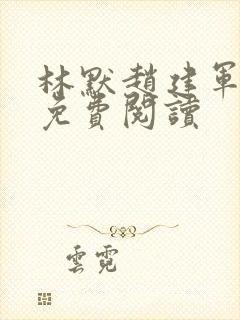 林默趙建軍
免費閱讀
雲霓